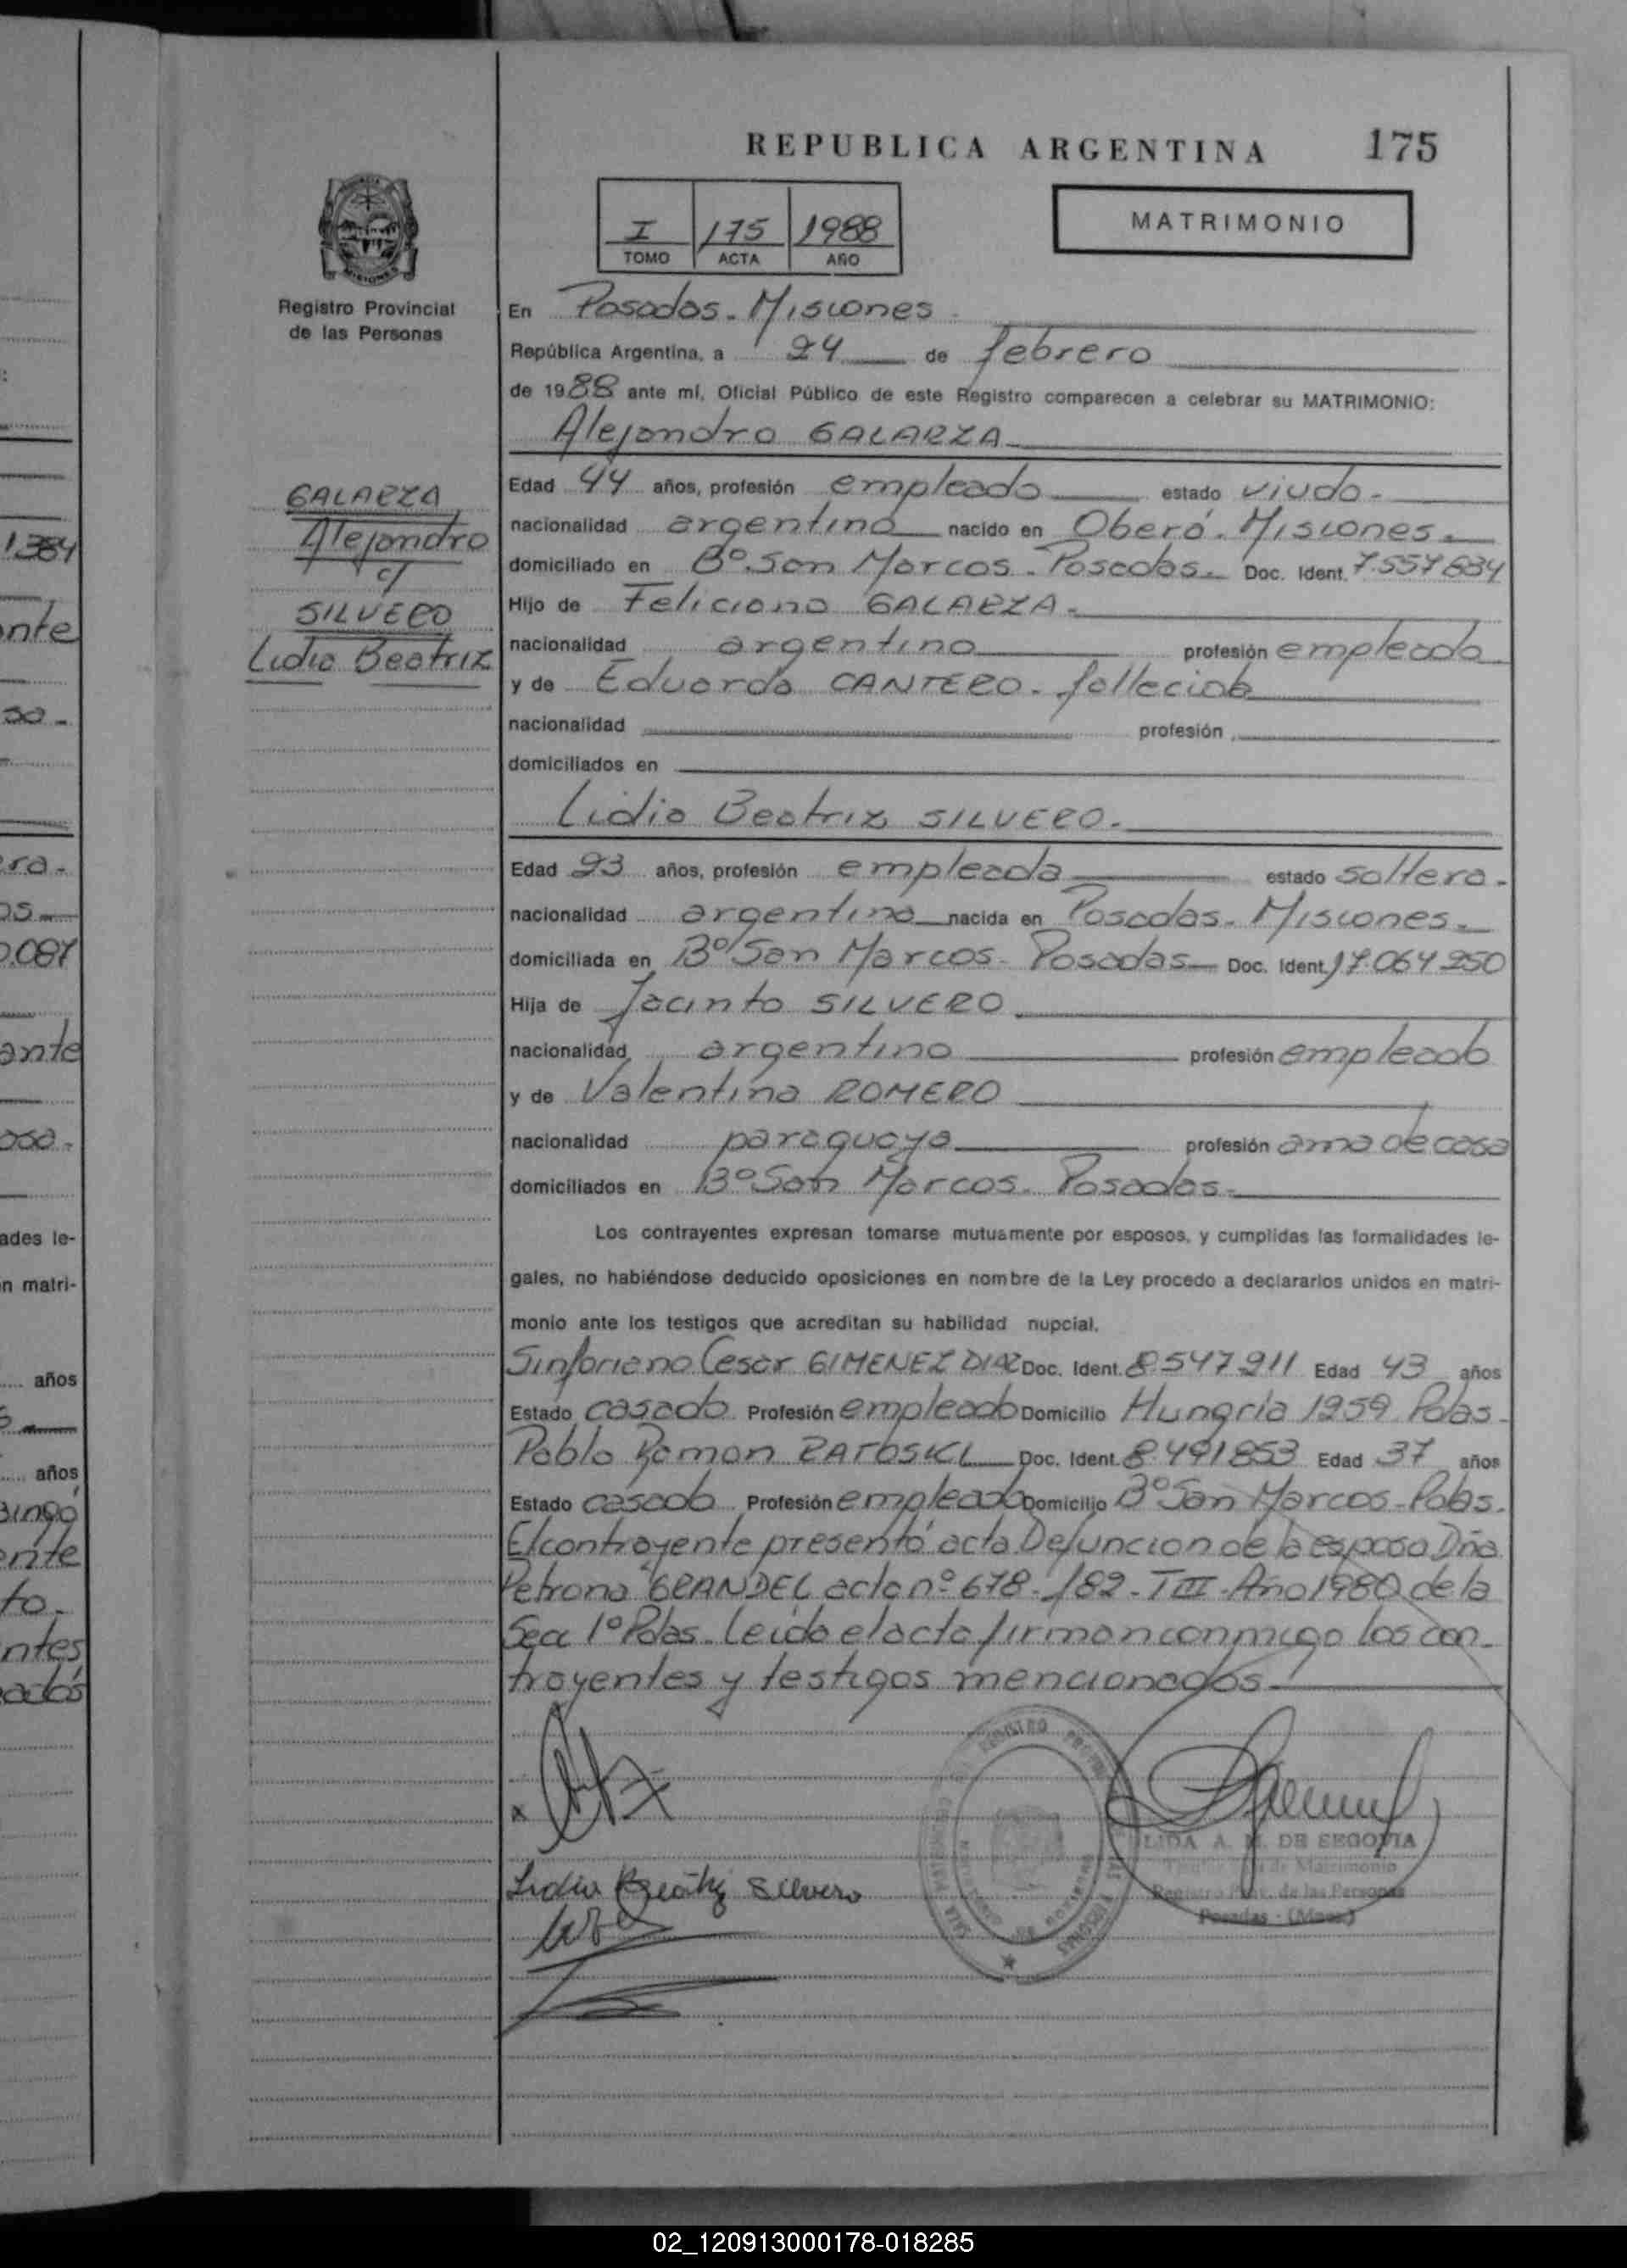 REPUBLICA ARGENTINA 175
I 175 1988
TOMO ACTA AÑO
MATRIMONIO
Registro Provincial
de las Personas
En Posadas. Misiones.
República Argentina, a 24 de febrero
de 1988 ante mí, Oficial Público de este Registro comparecen a celebrar su MATRIMONIO:
Alejandro GALARZA
GALARZA
Alejandro
c/
SILVERO
Lidia Beatriz
Edad 44 años, profesión empleado estado viudo.
nacionalidad argentina nacido en Oberá. Misiones.
domiciliado en Bº San Marcos. Posadas. Doc. Ident. 7.557834
Hijo de Feliciano GALARZA.
nacionalidad argentino profesión empleado
y de Eduarda CANTERO. fallecida
nacionalidad profesión
domiciliados en
Lidia Beatriz SILVERO.
Edad 23 años, profesión empleada estado soltera.
nacionalidad argentina nacida en Posadas. Misiones.
domiciliada en Bº San Marcos. Posadas Doc. Ident. 17.064250
Hija de Jacinto SILVERO
nacionalidad argentino profesión empleado
y de Valentina ROMERO
nacionalidad paraguaya profesión ama de casa
domiciliados en Bº San Marcos. Posadas.
Los contrayentes expresan tomarse mutuamente por esposos, y cumplidas las formalidades le-
gales, no habiéndose deducido oposiciones en nombre de la Ley procedo a declararlos unidos en matri-
monio ante los testigos que acreditan su habilidad nupcial.
Sinforiano Cesar GIMENEZ DIAZ Doc. Ident. 8547911 Edad 43 años
Estado casado Profesión empleado Domicilio Hungria 1959 Pdas.
Pablo Ramon Doc. Ident. 8.491853 Edad 37 años
Estado casado Profesión empleado Domicilio Bº San Marcos-Pdas.
El contrayente presentó acta Defuncion de la esposa Dña
Petrona GRANDEL acta nº 678-/82-T III-Año 1980 de la
Secc 1º Pdas. Leida el acta firman conmigo los con-
trayentes y testigos mencionados.
Lidia Beatriz Silvero
LIDA A. M. DE SEGOVIA
de Matrimonio
Registro Prov. de las Personas
Posadas - (Mnes.)
1.384
nte
so-
ra.
os
0.087
ante
osa.
ades le-
n matri-
años
años
ente
to.
ntes
ados
02_120913000178-018285